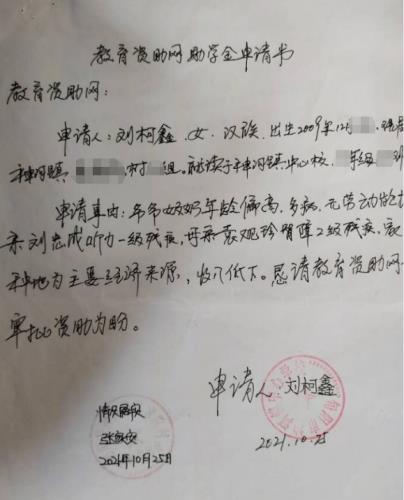 教育资助网助学金申请书
教育资助网:
申请人:刘柯鑫,女,汉族,出生2009年12月
神河镇 村 组。就读于神河镇中心校, 年级 班
申请事由:年爷奶奶年龄偏高,多病,无劳动能
亲刘忠成听力一级残疾,母亲袁观珍智障2级残疾,家
种地为主要经济来源,收入低下。恳请教育资助网
审批资助为盼。
申请人 刘柯鑫
2021.10.25
情况属实
2021年10月25日